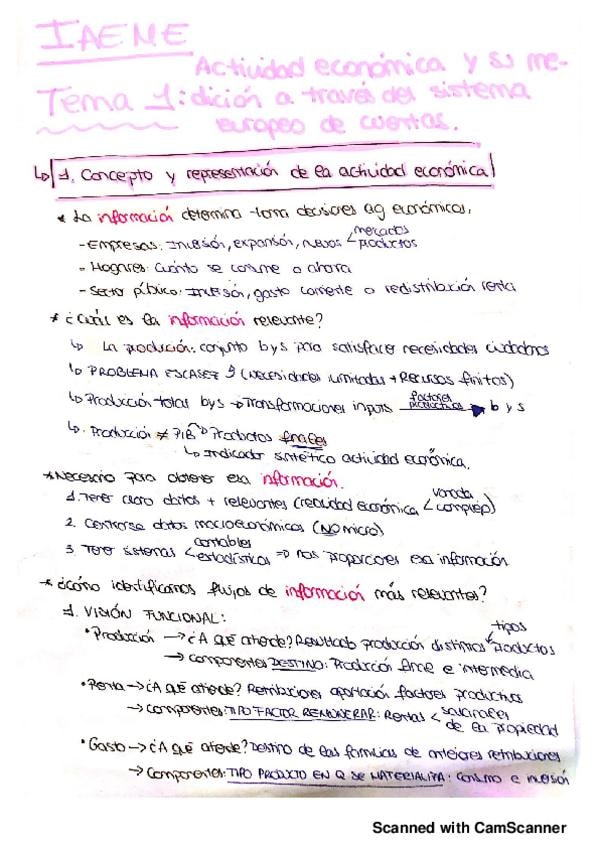 IAEME
Actividad económica y su me-
Tema 1: dición a través del sistema
europeo de cuentas.
↳ 1. Concepto y representación de la actividad económica
* La información determina toma decisiones ag económicos.
- Empresas: Inversión, expansión, nuevos < mercados productos
- Hogares: Cuánto se consume o ahorra
- Sector público: Inversión, gasto corriente o redistribución renta
* ¿Cuál es la información relevante?
↳ La producción: conjunto bys para satisfacer necesidades ciudadanos
↳ PROBLEMA ESCASEZ (NECESIDADES ilimitadas + RECURSOS finitos)
↳ Producción total bys → Transformaciones inputs factores productivos → b y s
↳ Producción ≠ PIB → Productos finales
↳ Indicador sintético actividad económica.
* Necesario para obtener esa información.
1. Tener claro datos + relevantes (realidad económica < variada compleja)
2. Centrarse datos macroeconómicos (NO micro)
3. Tener sistemas < contables estadísticos ⇒ nos proporcionen esa información
* ¿Cómo identificamos flujos de información más relevantes?
1. VISIÓN FUNCIONAL:
• Producción → ¿A qué atiende? Resultado producción distintos tipos productos
→ Componentes DESTINO: Producción final e intermedia
• Renta → ¿A qué atiende? Retribuciones aportación factores productivos
→ Componentes: TIPO FACTOR REMUNERAR: Rentas < salariales de la propiedad
• Gasto → ¿A qué atiende? Destino de las familias de anteriores retribuciones
→ Componentes: TIPO PRODUCTO EN Q SE MATERIALIZA: consumo e inversión
Scanned with CamScanner